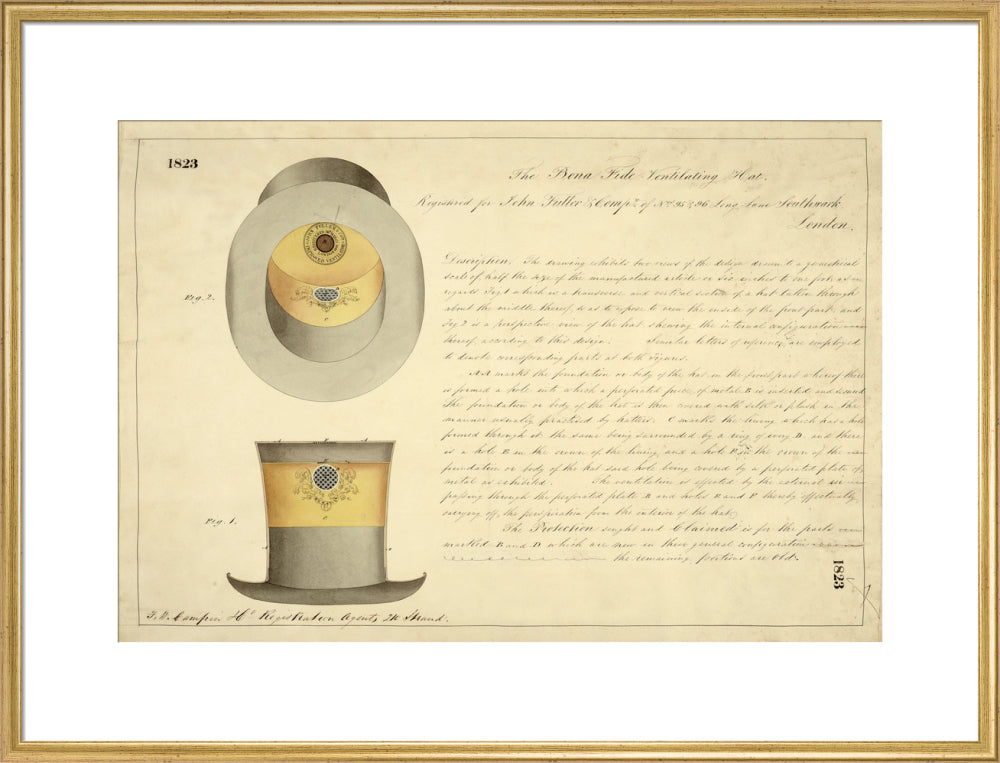 1823
The Bona Fide Ventilating Hat.
Registered for John Fuller & Compy. of Nos. 95 & 96 Long Lane Southwark
London.
Description. The drawing exhibits two views of the design drawn to a geometrical
scale of half the size of the manufactured article or six inches to one foot, as
regards Fig. 1 which is a transverse and vertical section of a hat taken through
about the middle thereof, so as to expose to view the inside of the front part, and
Fig. 2 is a perspective view of the hat shewing the internal configuration
thereof according to this design. Similar letters of reference are employed
to denote corresponding parts at both Figures.
A A marks the foundation or body of the hat in the front part whereof there
is formed a hole into which a perforated piece of metal B is inserted and
The foundation or body of the hat is then covered with silk or plush in the
manner usually practised by hatters. C marks the lining which has a hole
formed through it the same being surrounded by a ring of D and there
is a hole E in the crown of the lining and a hole F in the crown of the
foundation or body of the hat said hole being covered by a perforated plate of
metal as exhibited. The ventilation is effected by the external air
passing through the perforated plate B and holes E and F thereby effectually
carrying off the perspiration from the interior of the hat.
The Protection sought and Claimed is for the parts
marked B and D which are new in their general configuration
the remaining portions are Old.
Fig. 2.
JOHN FULLER & CO
LONG LANE
LONDON
IMPROVED VENTILATING
C
Fig. 1.
C
1823
Registration Agents, Strand.